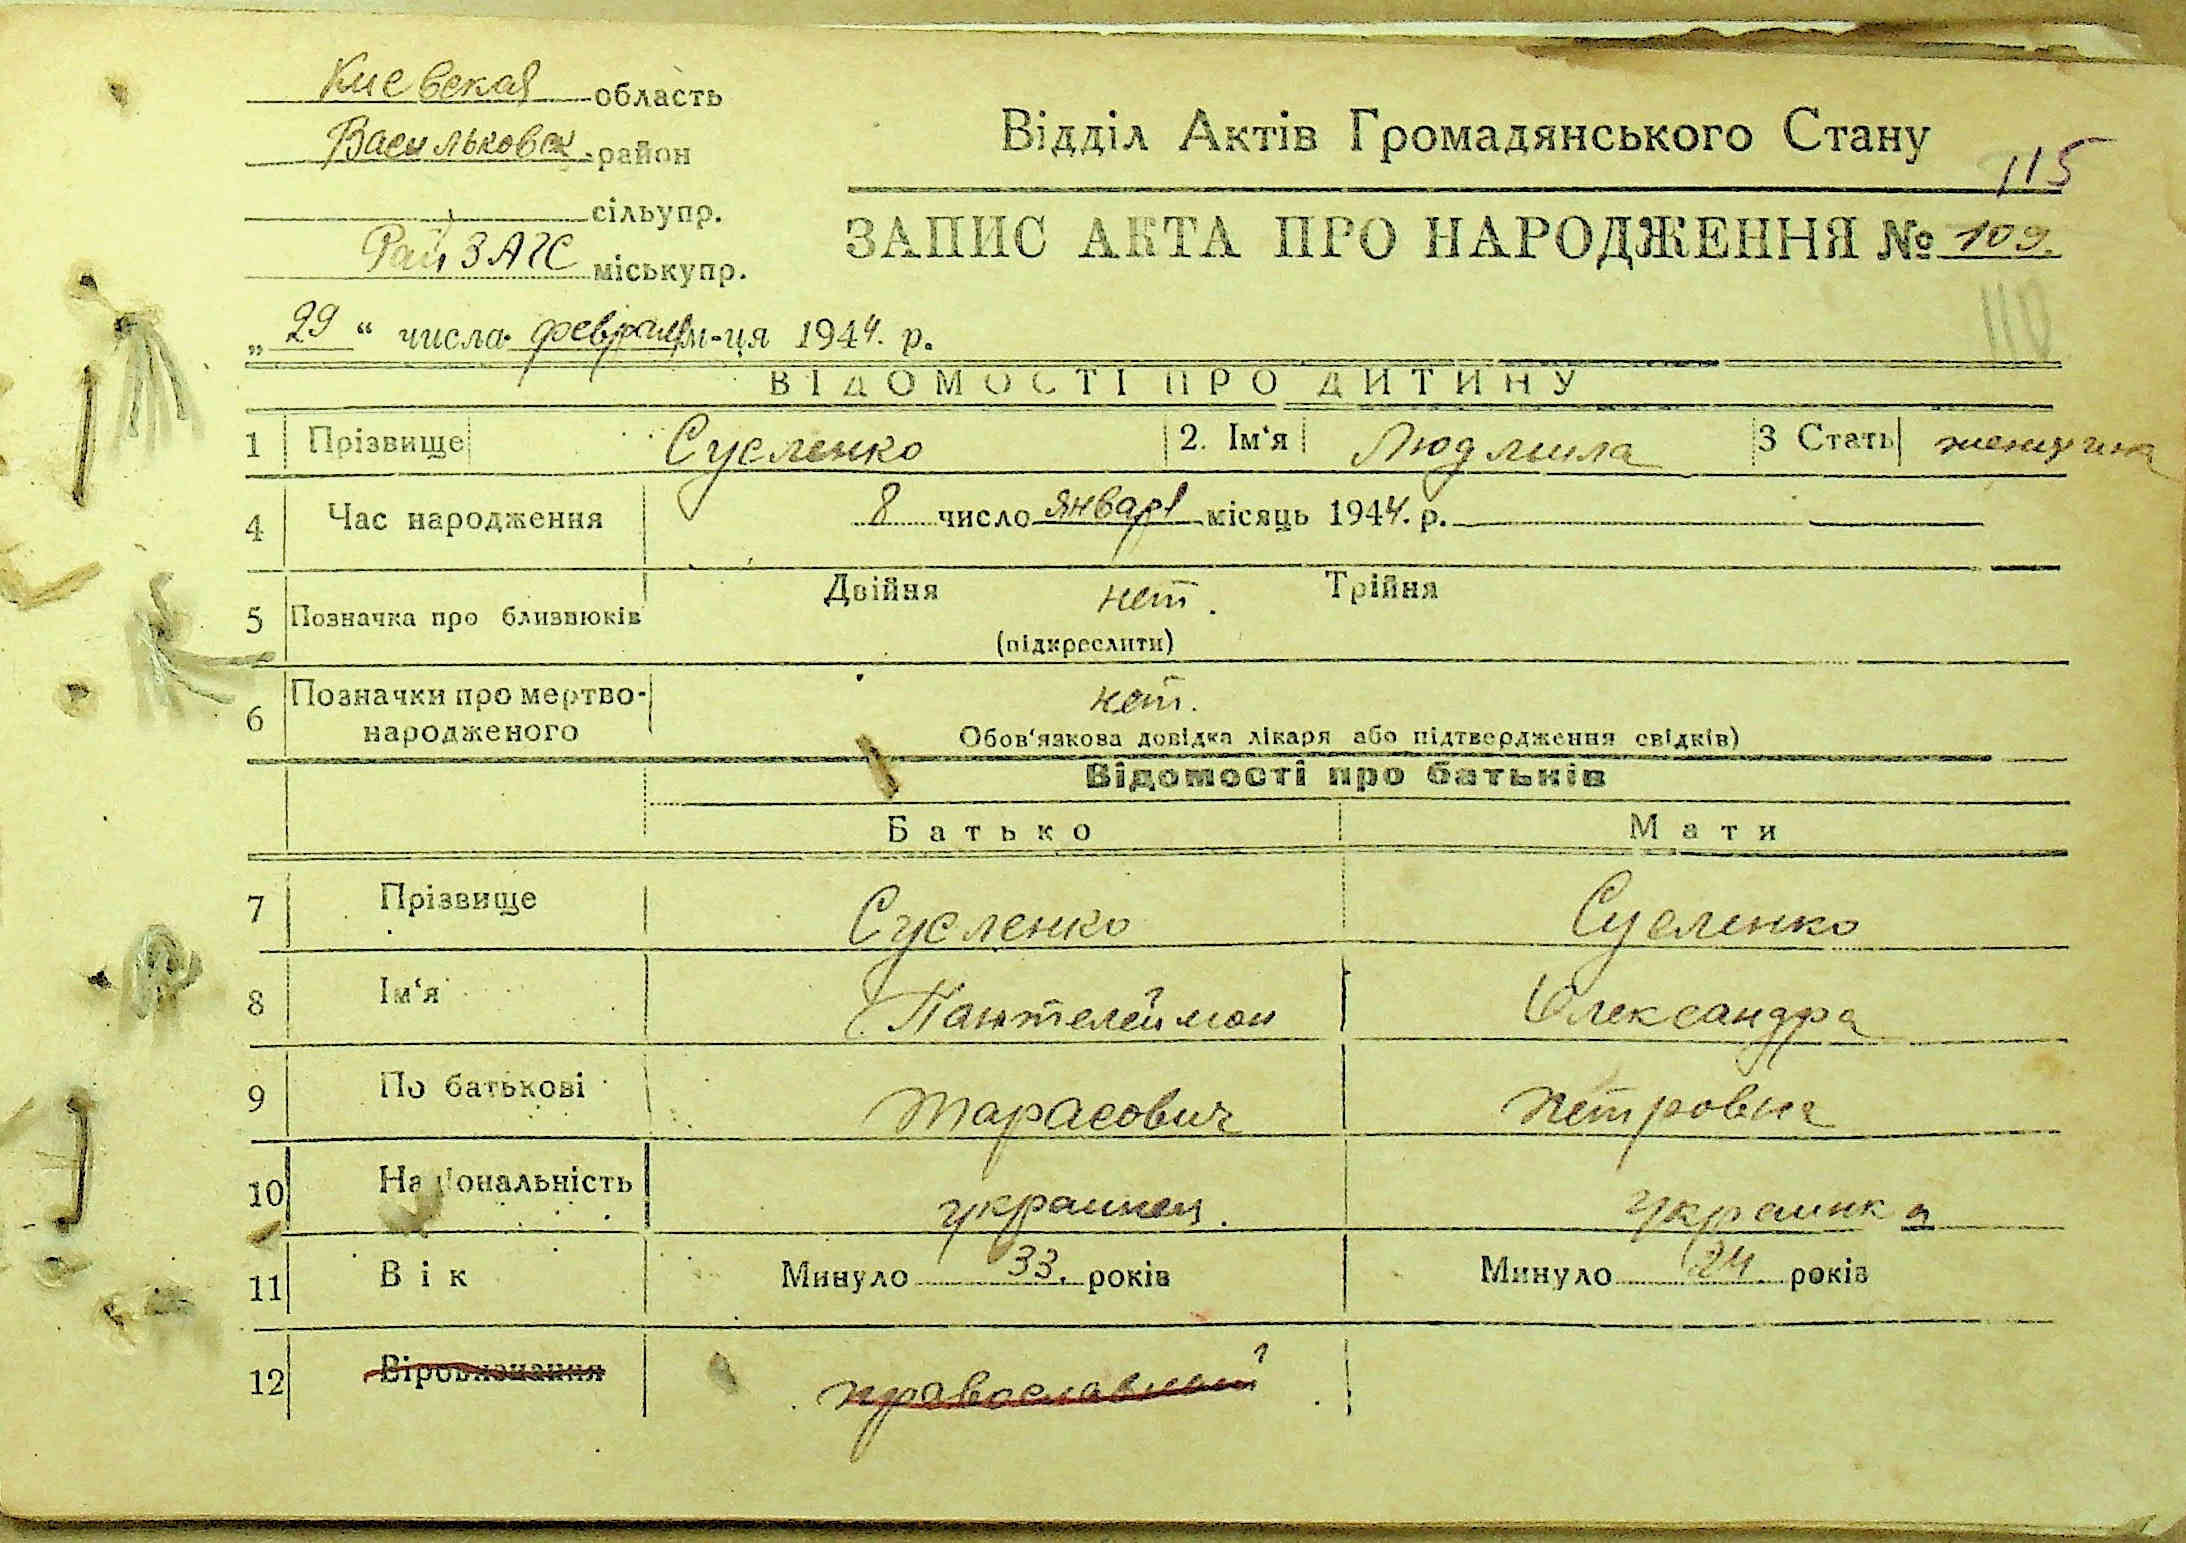 Киевская область
Васильковск. район
сільупр.
РайЗАГС міськупр.
Відділ Актів Громадянського Стану
115
ЗАПИС АКТА ПРО НАРОДЖЕННЯ № 109.
110
„29“ числа февраля м-ця 1944. р.
ВІДОМОСТІ ПРО ДИТИНУ
1 Прізвище Сусленко 2. Ім‘я Людмила 3 Стать женщина
4 Час народження 8 число января місяць 1944. р.
5 Позначка про близнюків Двійня нет. Трійня
(підкреслити)
6 Позначки про мертво-народженого нет.
Обов‘язкова довідка лікаря або підтвердження свідків)
Відомості про батьків
Батько Мати
7 Прізвище Сусленко Сусленко
8 Ім‘я Пантелеймон Олександра
9 По батькові Тарасович Петровна
10 Національність украинец. украинка
11 Вік Минуло 33. років Минуло 24 років
12 Віровизнання православный